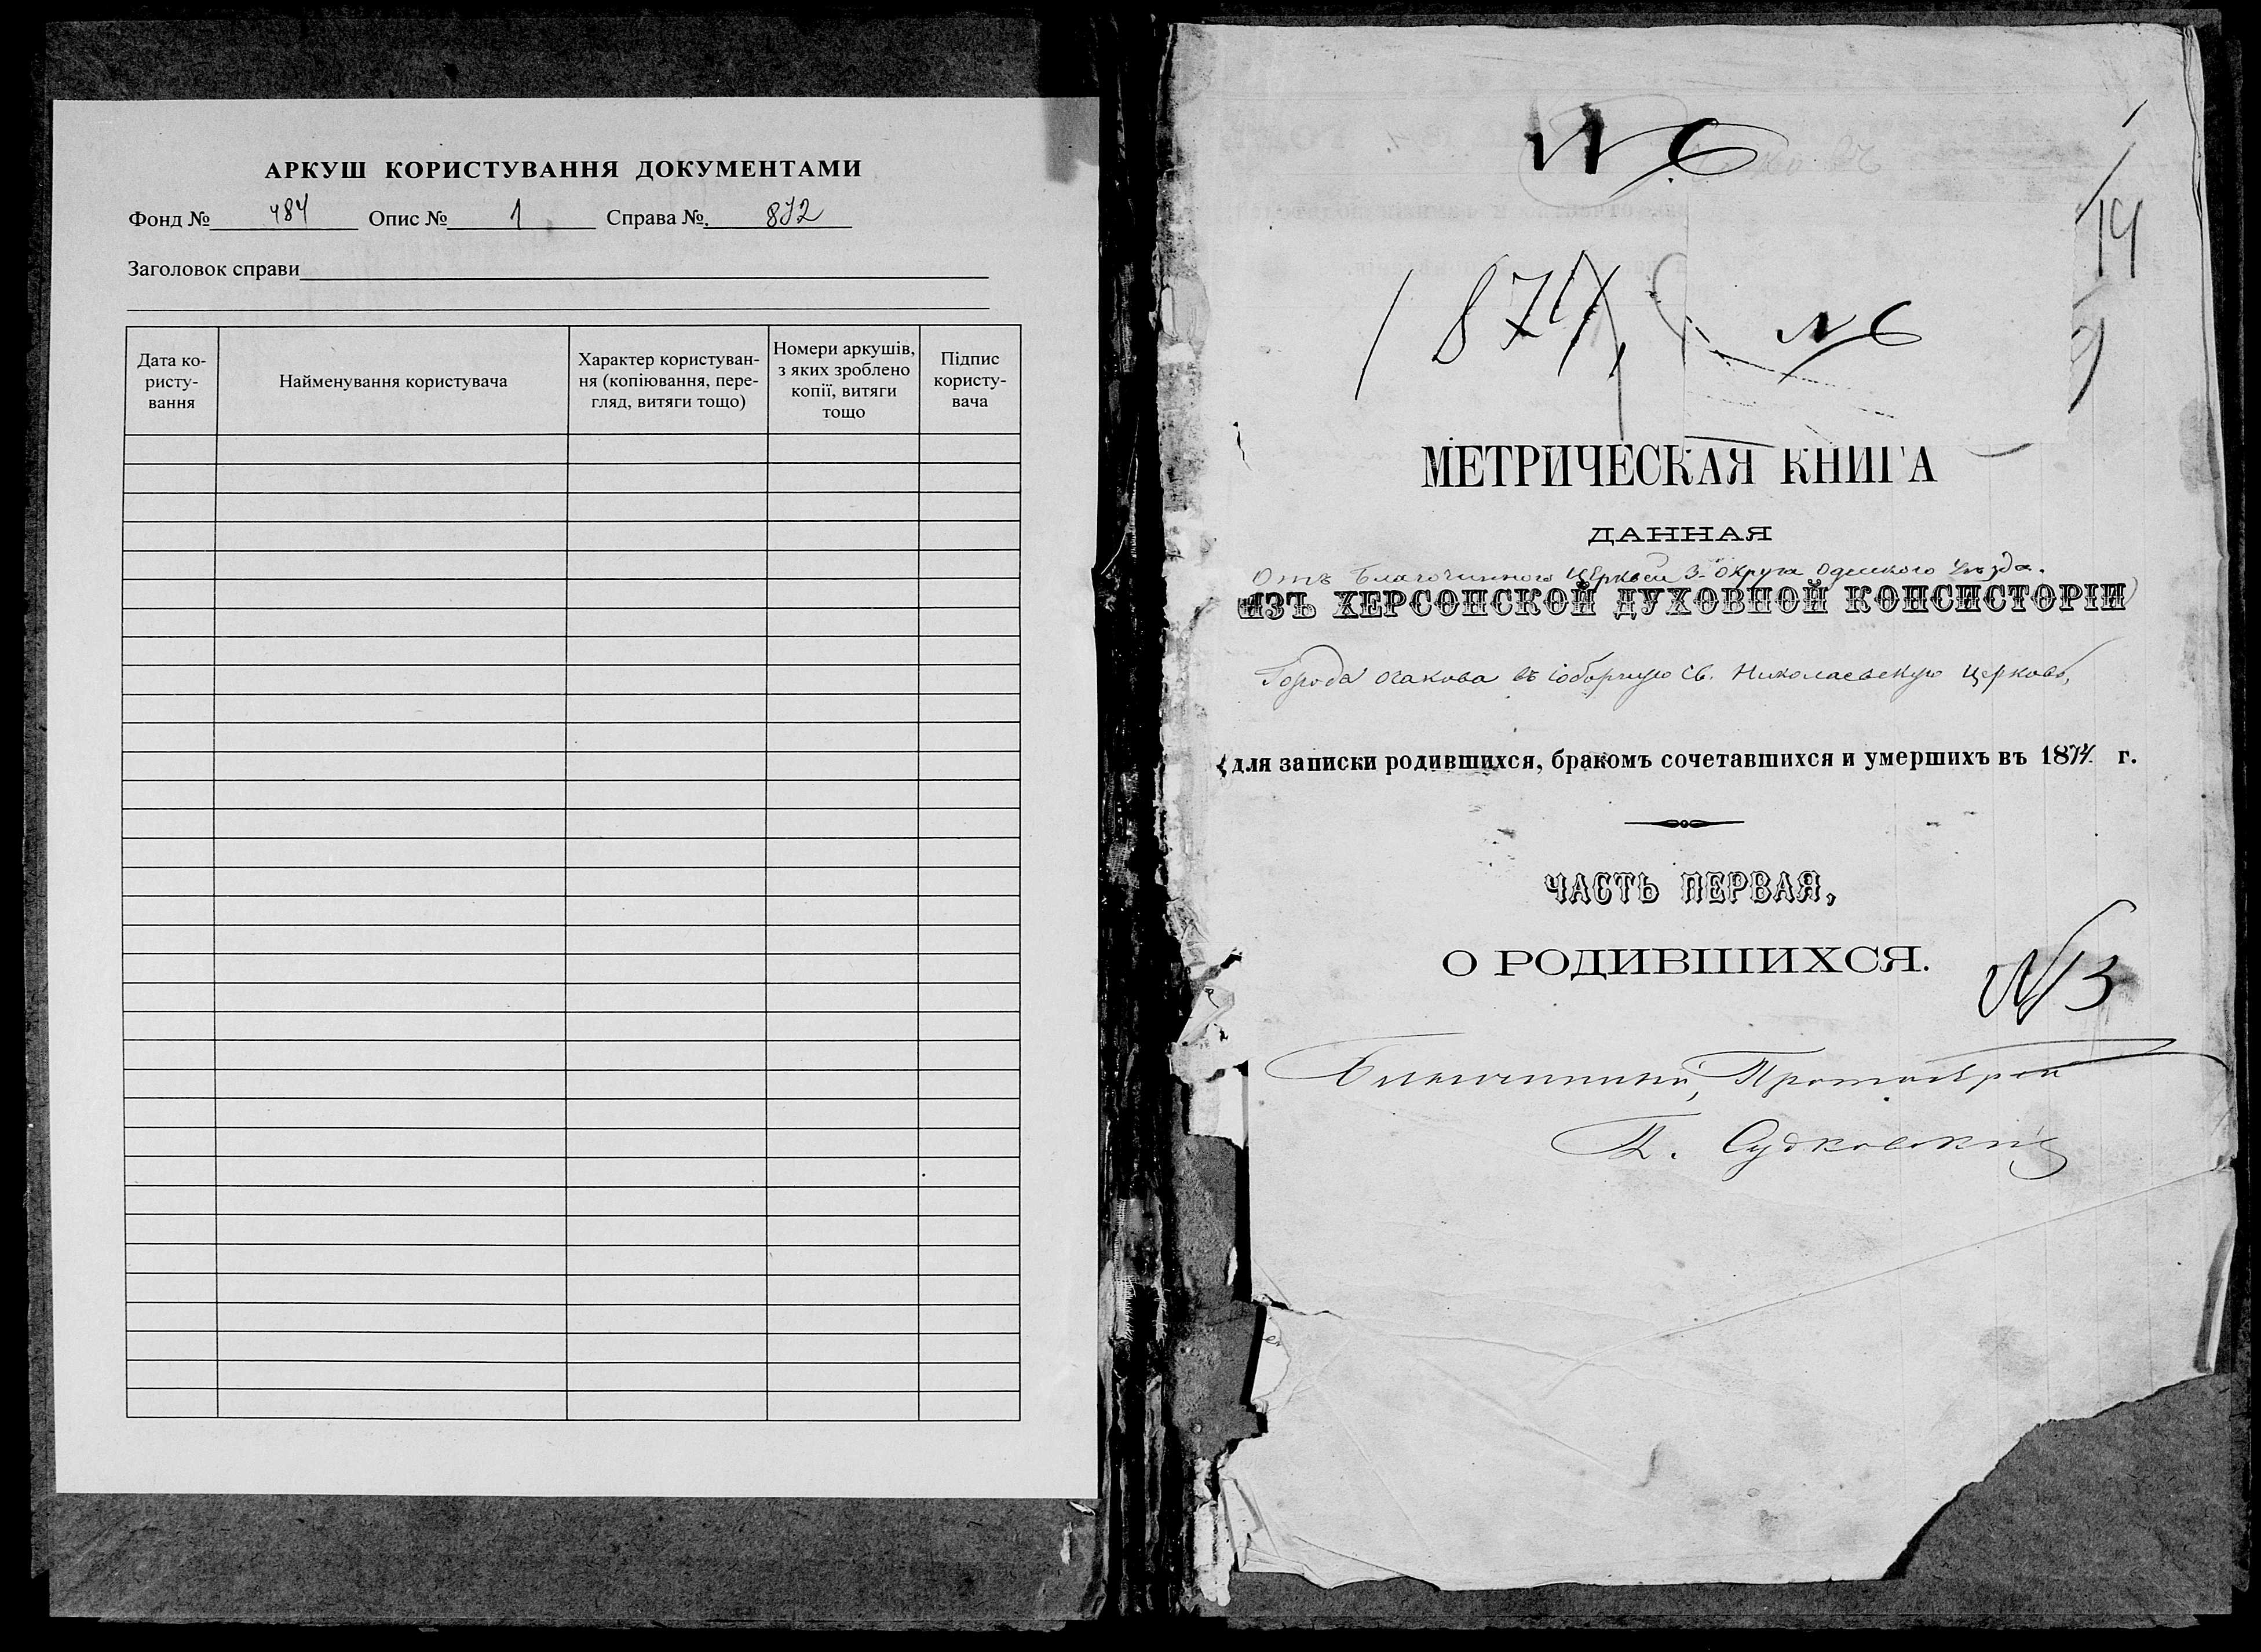 АРКУШ КОРИСТУВАННЯ ДОКУМЕНТАМИ
Фонд № 484 Опис № 1 Справа №. 872
Заголовок справи
Дата ко-
ристу-
вання
Найменування користувача
Характер користуван-
ня (копіювання, пере-
гляд, витяги тощо)
Номери аркушів,
з яких зроблено
копії, витяги
тощо
Підпис
користу-
вача
N 6
14
1874, N 6
9
МЕТРИЧЕСКАЯ КНИГА
ДАННАЯ
Отъ Благочиннаго Церквей 3. Округа Одесского Уѣзда.
ИЗЪ ХЕРСОНСКОЙ ДУХОВНОЙ КОНСИСТОРІИ
Города Очакова въ соборную Св. Николаевскую Церковь,
для записки родившихся, бракомъ сочетавшихся и умершихъ въ 1874 г.
ЧАСТЬ ПЕРВАЯ,
О РОДИВШИХСЯ.
N 3
Благочинный, Протоіерей
Судковскій